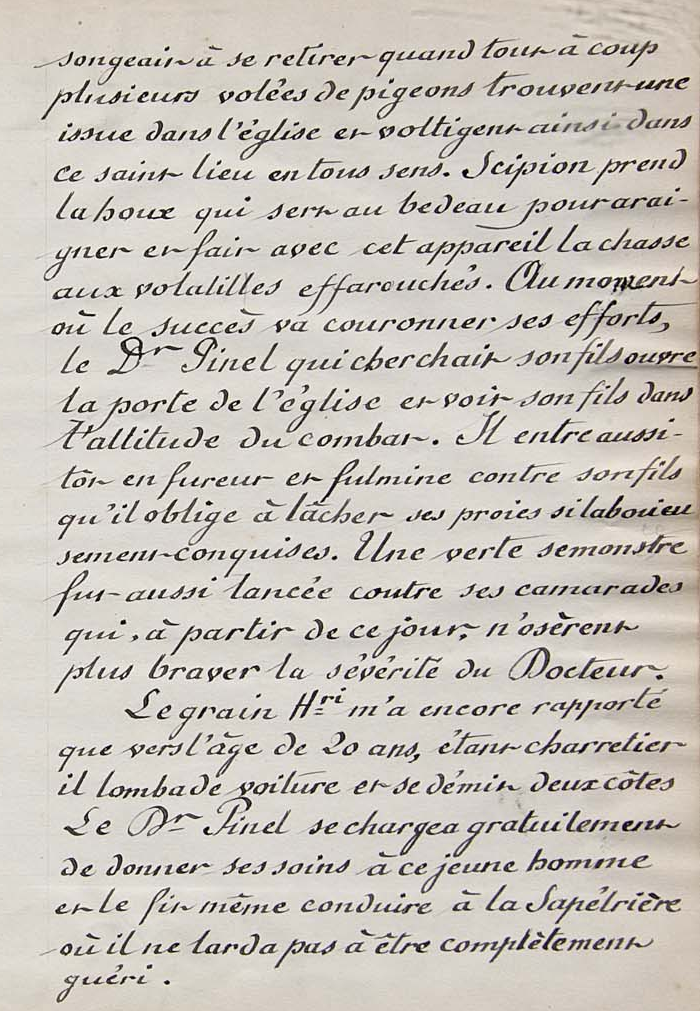 songeait à se retirer quand tout à coup
plusieurs volées de pigeons trouvent une
issue dans l'église et voltigent ainsi dans
ce saint lieu en tous sens. Scipion prend
la houx qui sert au bedeau pour arai-
gner et fait avec cet appareil la chasse
aux volatilles effarouchés. Au moment
où le succès va couronner ses efforts,
le Dr Pinel qui cherchait son fils ouvre
la porte de l'église et voit son fils dans
l'attitude du combat. Il entre aussi-
tôt en fureur et fulmine contre son fils
qu'il oblige à lâcher ses proies si laborieu
sement conquises. Une verte semonstre
fut aussi lancée contre ses camarades
qui, à partir de ce jour, n'osèrent
plus braver la sévérité du Docteur.
Legrain Hri m'a encore rapporté
que vers l'âge de 20 ans, étant charretier
il tomba de voiture et se démit deux côtes
Le Dr Pinel se chargea gratuitement
de donner ses soins à ce jeune homme
et le fit même conduire à la Sapétrière
où il ne tarda pas à être complètement
guéri.